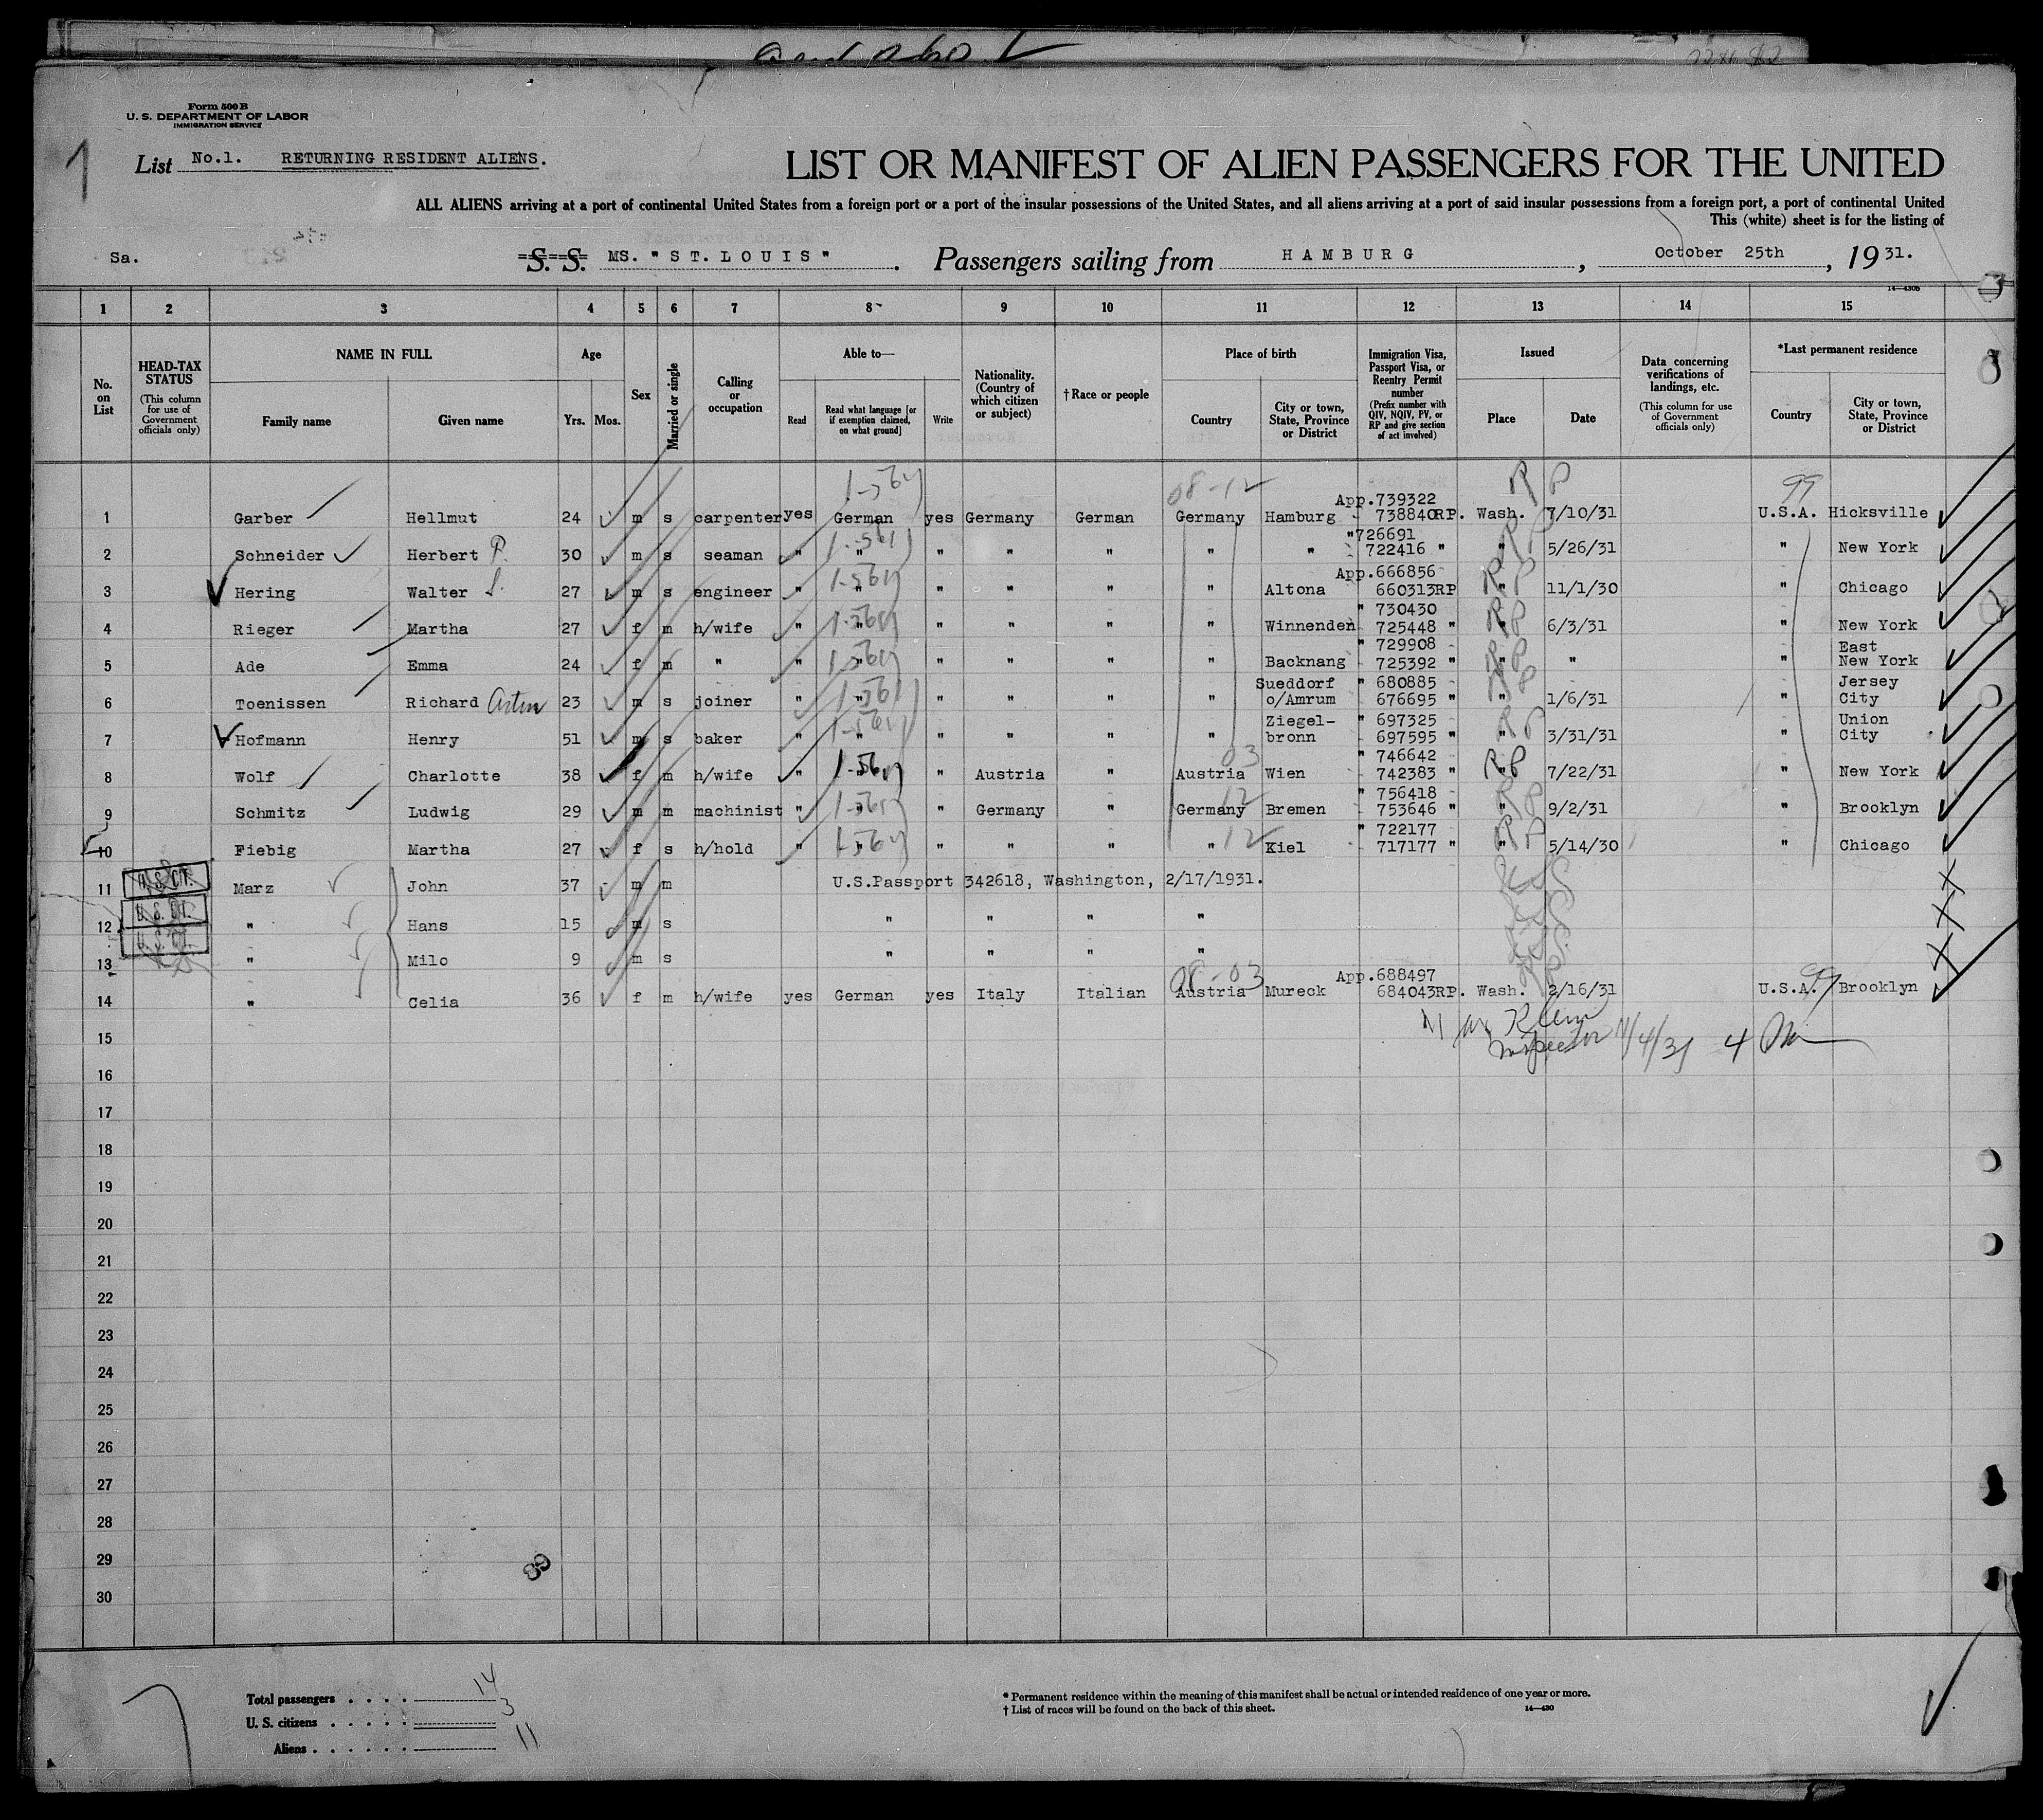 Form 500 B
U. S. DEPARTMENT OF LABOR
IMMIGRATION SERVICE
1
List No.1. RETURNING RESIDENT ALIENS.
LIST OR MANIFEST OF ALIEN PASSENGERS FOR THE UNITED
ALL ALIENS arriving at a port of continental United States from a foreign port or a port of the insular possessions of the United States, and all aliens arriving at a port of said insular possessions from a foreign port, a port of continental United
This (white) sheet is for the listing of
Sa. S. S. MS. "ST.LOUIS". Passengers sailing from HAMBURG, October 25th, 1931.
14-430b
1 2 3 4 5 6 7 8 9 10 11 12 13 14 15
No. on List
HEAD-TAX STATUS (This column for use of Government officials only)
NAME IN FULL
Family name Given name
Age
Yrs. Mos.
Sex
Married or single
Calling or occupation
Able to—
Read Read what language [or if exemption claimed, on what ground] Write
Nationality. (Country of which citizen or subject)
†Race or people
Place of birth
Country City or town, State, Province or District
Immigration Visa, Passport Visa, or Reentry Permit number (Prefix number with QIV, NQIV, PV, or RP and give section of act involved)
Issued
Place Date
Data concerning verifications of landings, etc. (This column for use of Government officials only)
*Last permanent residence
Country City or town, State, Province or District
08-12 RP 99
App.739322
1 Garber Hellmut 24 m s carpenter yes German yes Germany German Germany Hamburg 738840RP. Wash. 7/10/31 U.S.A. Hicksville
"726691
2 Schneider Herbert P. 30 m s seaman " " " " " " " 722416 " " 5/26/31 " New York
App.666856
3 Hering Walter 27 m s engineer " " " " " " Altona 660313RP " 11/1/30 " Chicago
" 730430
4 Rieger Martha 27 f m h/wife " " " " " " Winnenden 725448 " " 6/3/31 " New York
" 729908 East
5 Ade Emma 24 f m " " " " " " " Backnang 725392 " " " " New York
Sueddorf " 680885 Jersey
6 Toenissen Richard 23 m s joiner " " " " " " o/Amrum 676695 " " 1/6/31 " City
Ziegel- " 697325 Union
7 Hofmann Henry 51 m s baker " " " " " " bronn 697595 " " 3/31/31 " City
03 " 746642
8 Wolf Charlotte 38 f m h/wife " " " Austria " Austria Wien 742383 " " 7/22/31 " New York
" 756418
9 Schmitz Ludwig 29 m m machinist " " " Germany " Germany 12 Bremen 753646 " " 9/2/31 " Brooklyn
" 722177
10 Fiebig Martha 27 f s h/hold " " " " " " 12 Kiel 717177 " " 5/14/30 " Chicago
11 U.S.CT. Marz John 37 m m U.S.Passport 342618, Washington, 2/17/1931.
12 U.S.CT. " Hans 15 m s " " " "
13 U.S.CT. " Milo 9 m s " " " "
08-03 App.688497 99
14 " Celia 36 f m h/wife yes German yes Italy Italian Austria Mureck 684043RP. Wash. 2/16/31 U.S.A. Brooklyn
15 Inspector 11/4/31 4
16
17
18
19
20
21
22
23
24
25
26
27
28
29
30
Total passengers . . . . 14
U. S. citizens . . . . . 3
Aliens . . . . . . 11
* Permanent residence within the meaning of this manifest shall be actual or intended residence of one year or more.
† List of races will be found on the back of this sheet.
14-430